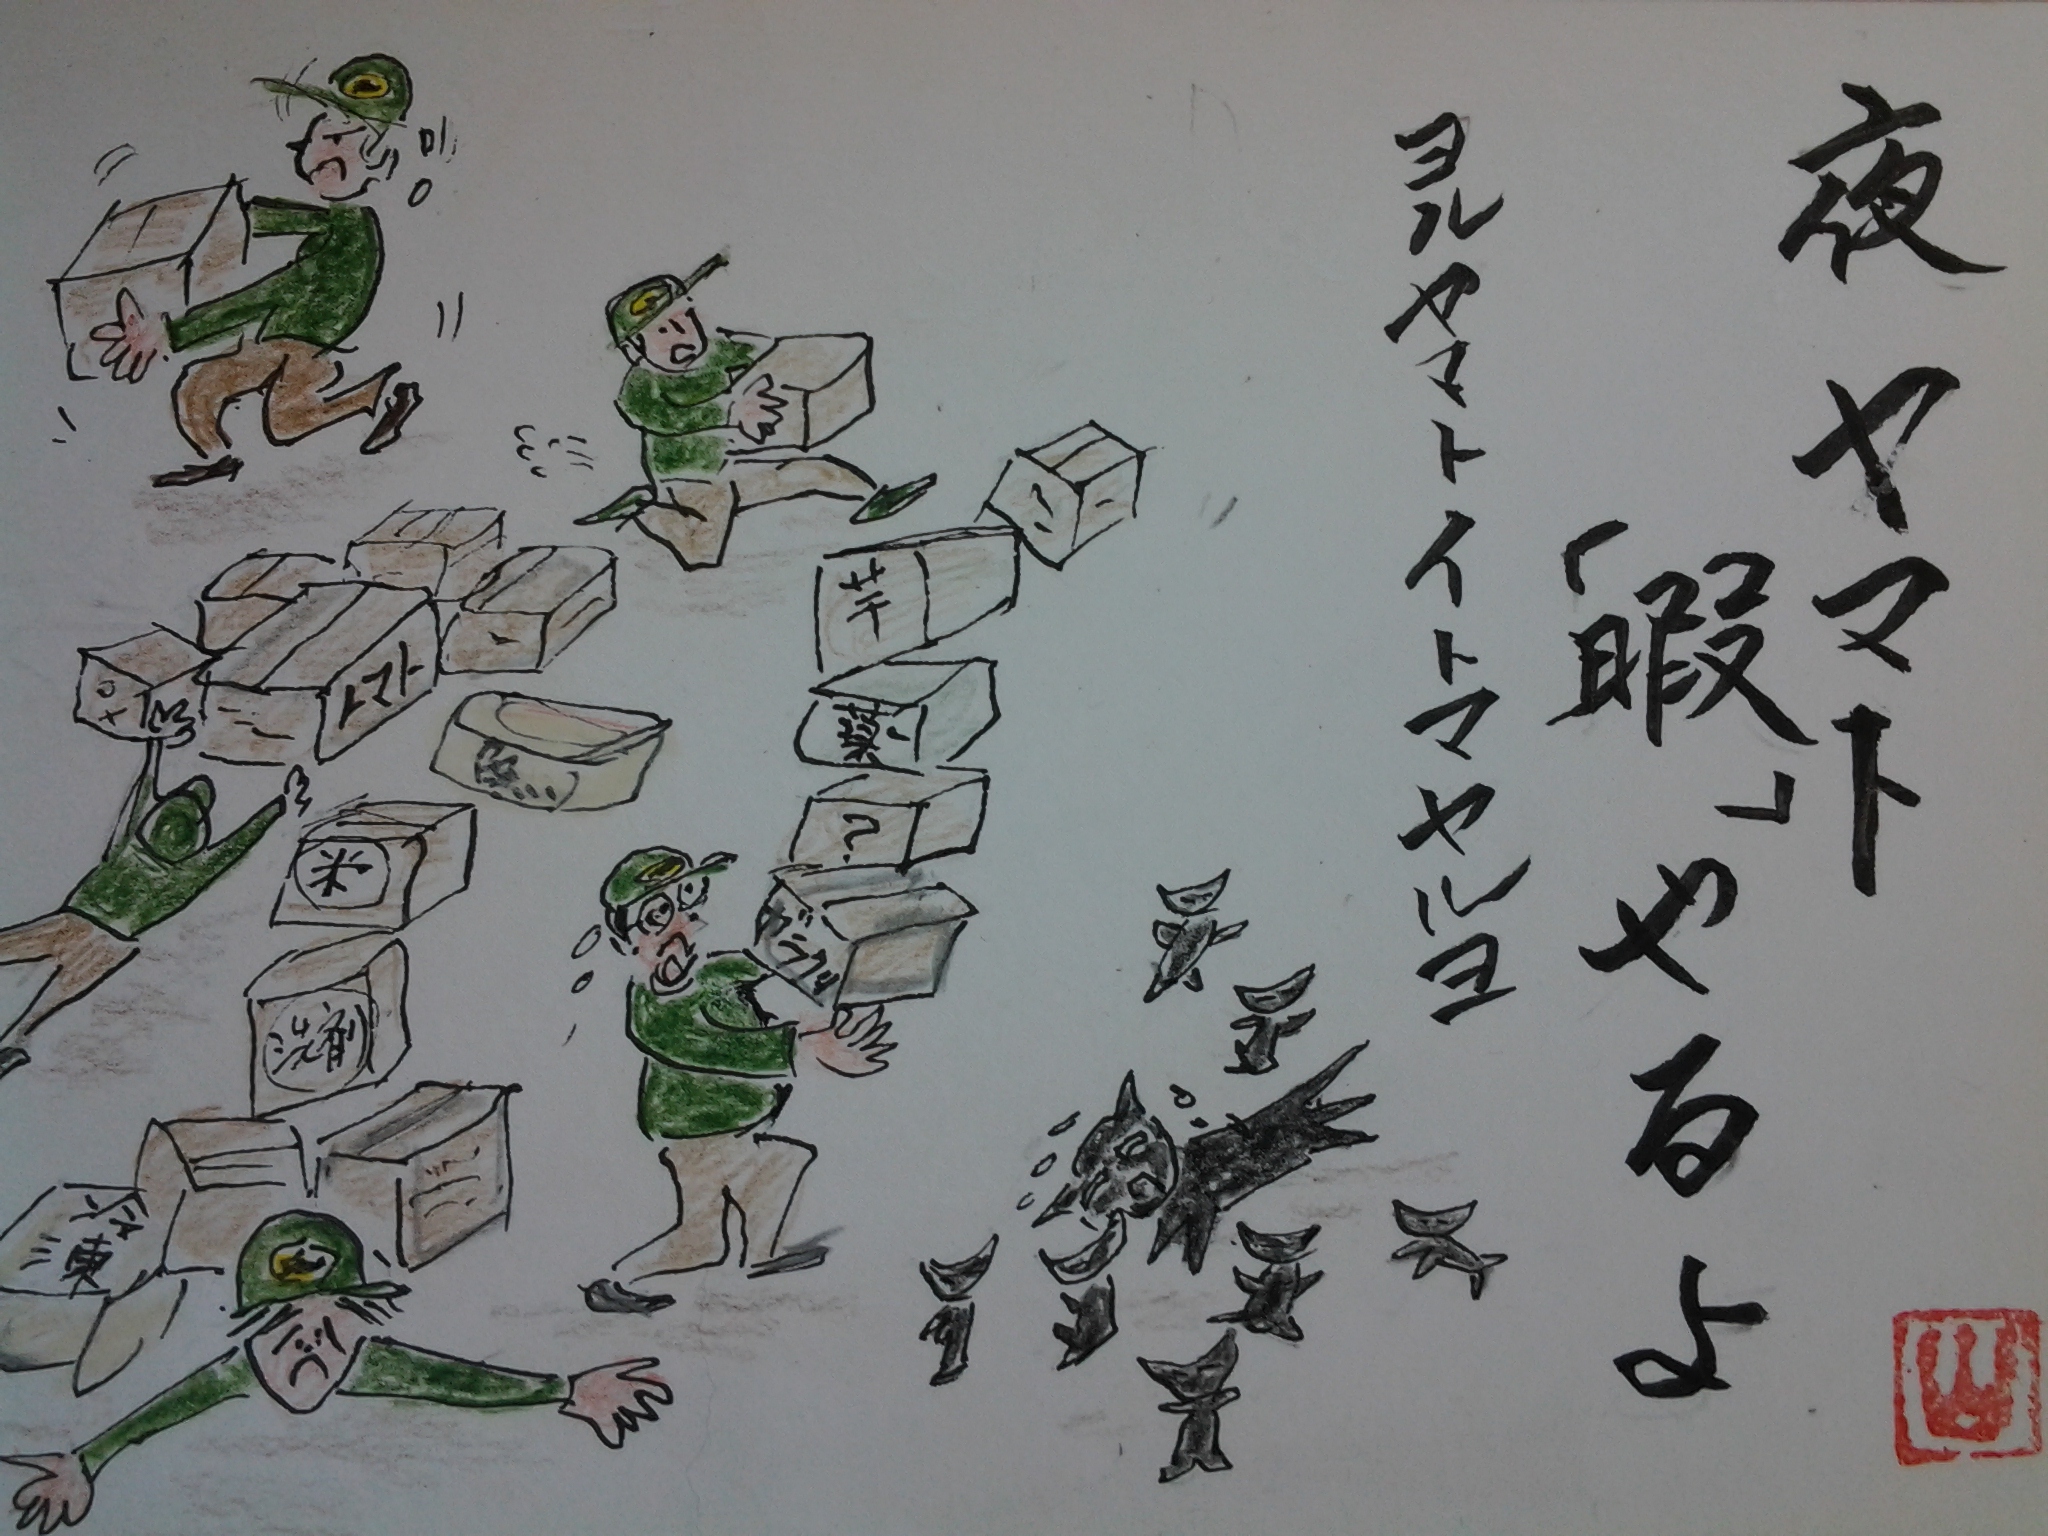 夜 ヤマト
「暇」やるよ
ヨルヤマトイトマヤルヨ
トマト
芋
薬
?
米
洗剤
冷凍